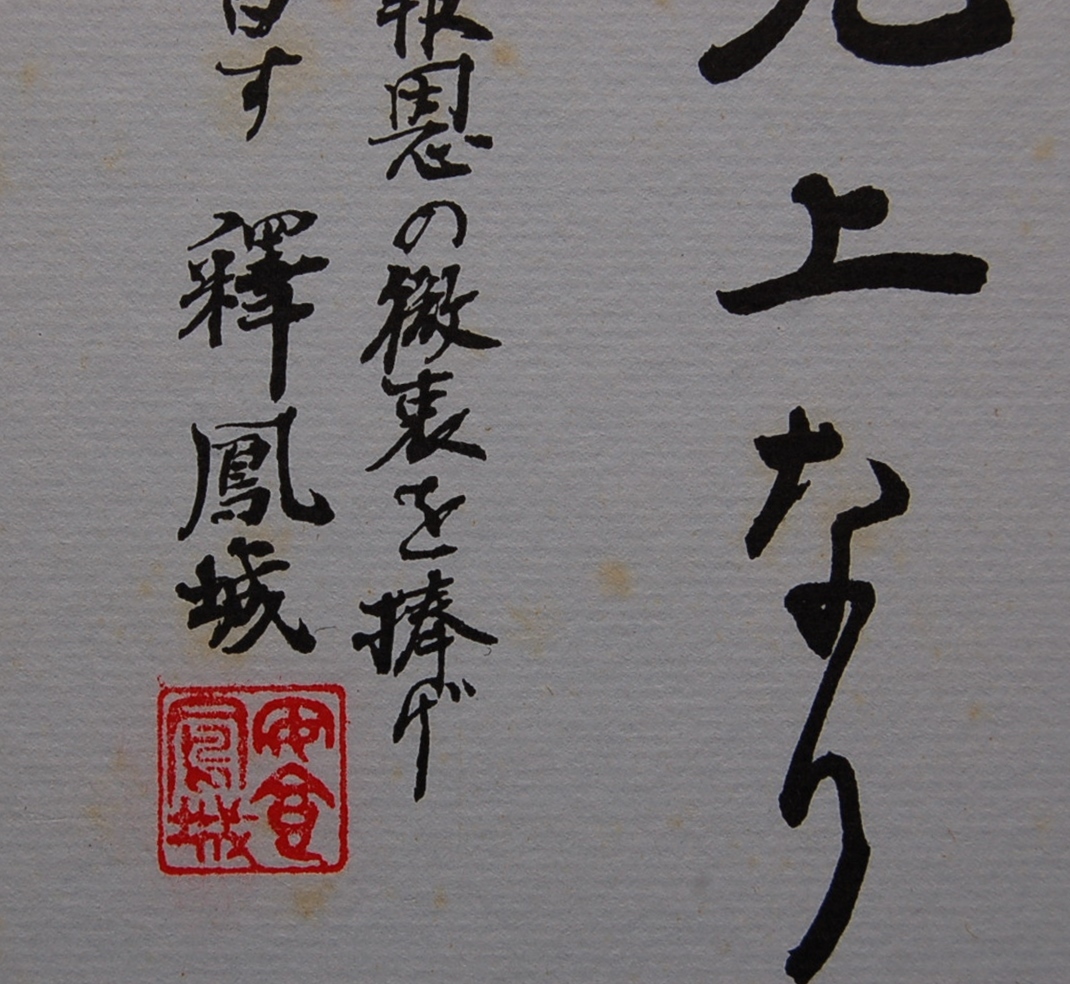 上なり
報恩の微衷を捧げ
す 釋鳳城
鳳城